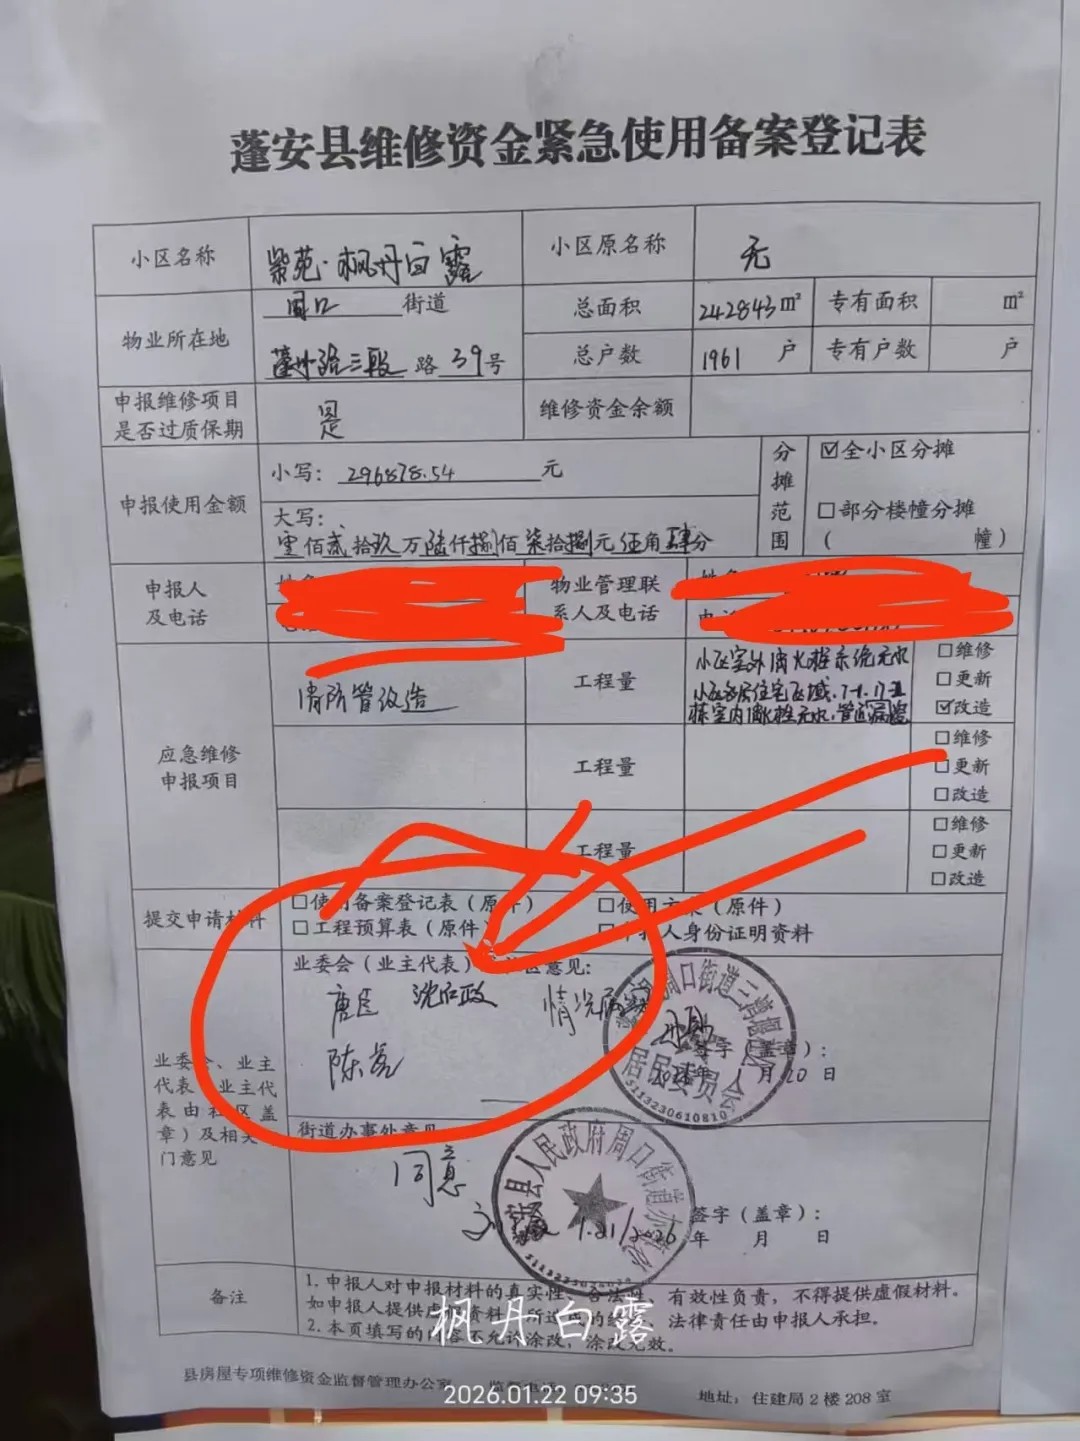 蓬安县维修资金紧急使用备案登记表
小区名称 紫苑·枫丹白露 小区原名称 无
物业所在地 周口 街道 总面积 242843 m² 专有面积 m²
路 39 号 总户数 1961 户 专有户数 户
申报维修项目是否过质保期 是 维修资金余额
申报使用金额 小写: 296878.54 元 分摊范围 ☑全小区分摊
大写: 零佰贰拾玖万陆仟捌佰柒拾捌元伍角肆分 □部分楼幢分摊
( 幢)
申报人及电话 物业管理联系人及电话
应急维修申报项目 消防管改造 工程量 小区室外消火栓系统无水 □维修
□更新
栋室内消火栓无水,管道漏 ☑改造
工程量 □维修
□更新
□改造
工程量 □维修
□更新
□改造
提交申请材料 □使用备案登记表(原件) □使用方案(原件)
□工程预算表(原件) 人身份证明资料
业委会、业主代表 业主代表由社区盖章)及相关 门意见
业委会(业主代表) 区意见:
唐臣 情况属实
陈亮
签字(盖章):
年 1 月 20 日
周口街道三 居民委员会
5113230610810
街道办事处意见
同意
县人民政府周口街道办 处
1.21/2026
签字(盖章):
年 月 日
备注 1.申报人对申报材料的真实性、合法性、有效性负责,不得提供虚假材料。
如申报人提供虚 资料 所造成的 法律责任由申报人承担。
2.本页填写的内容不允许涂改,涂改无效。
枫丹白露
县房屋专项维修资金监督管理办公室 监督电话: 地址:住建局2楼208室
2026.01.22 09:35